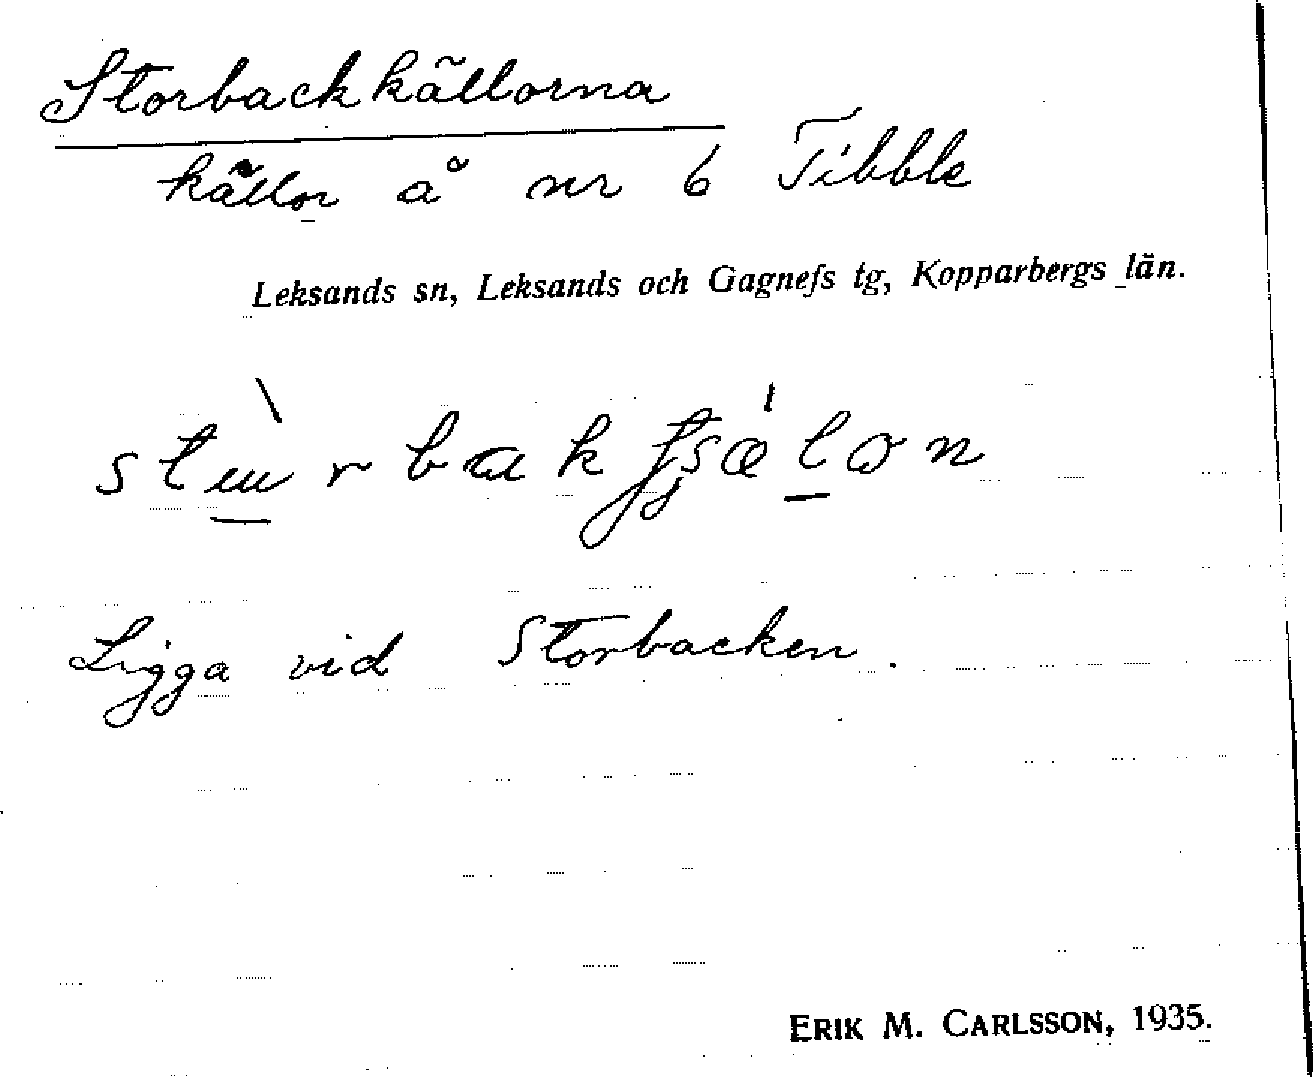 Storbackkällorna
källor å nr 6 Tibble
Leksands sn, Leksands och Gagnefs tg, Kopparbergs län.
Ligga vid Storbacken.
ERIK M. CARLSSON, 1935.